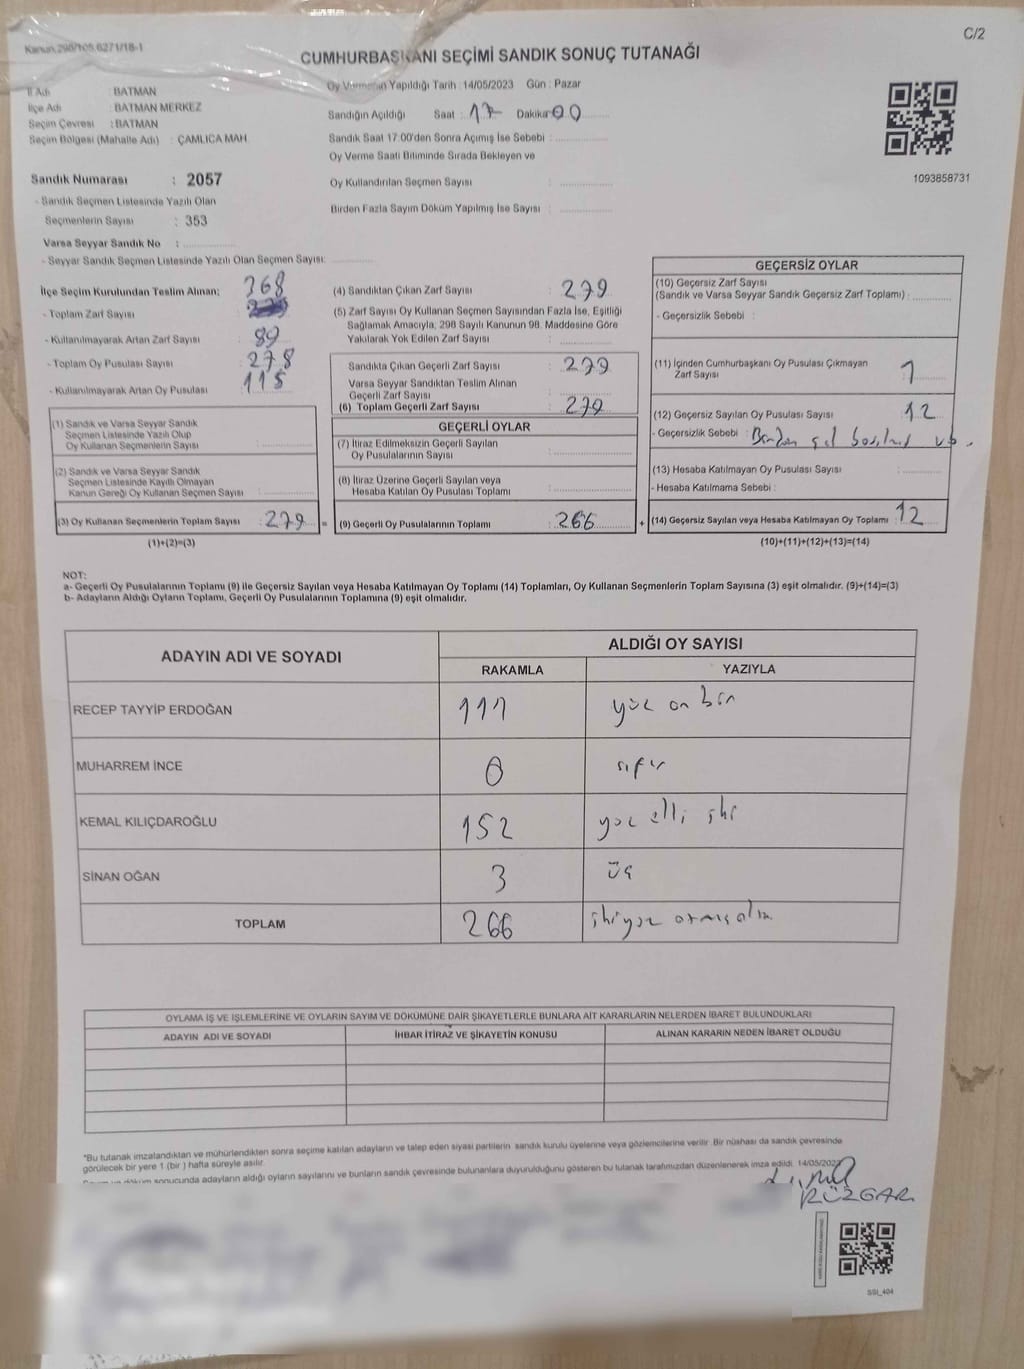 Kanun.298/105.6271/18-1
C/2
CUMHURBAŞKANI SEÇİMİ SANDIK SONUÇ TUTANAĞI
İl Adı : BATMAN
İlçe Adı : BATMAN MERKEZ
Seçim Çevresi : BATMAN
Seçim Bölgesi (Mahalle Adı) : ÇAMLICA MAH
Sandık Numarası : 2057
- Sandık Seçmen Listesinde Yazılı Olan
Seçmenlerin Sayısı : 353
Varsa Seyyar Sandık No :
- Seyyar Sandık Seçmen Listesinde Yazılı Olan Seçmen Sayısı:
Oy Vermenin Yapıldığı Tarih : 14/05/2023 Gün : Pazar
Sandığın Açıldığı Saat : 17 Dakika 00
Sandık Saat 17.00'den Sonra Açımış İse Sebebi :
Oy Verme Saati Bitiminde Sırada Bekleyen ve
Oy Kullandırılan Seçmen Sayısı :
Birden Fazla Sayım Döküm Yapılmış İse Sayısı :
1093858731
İlçe Seçim Kurulundan Teslim Alınan; 368
- Toplam Zarf Sayısı
- Kullanılmayarak Artan Zarf Sayısı : 89
- Toplam Oy Pusulası Sayısı : 278
- Kullanılmayarak Artan Oy Pusulası : 115
(1) Sandık ve Varsa Seyyar Sandık
Seçmen Listesinde Yazılı Olup
Oy Kullanan Seçmenlerin Sayısı :
(2) Sandık ve Varsa Seyyar Sandık
Seçmen Listesinde Kayıtlı Olmayan
Kanun Gereği Oy Kullanan Seçmen Sayısı :
(3) Oy Kullanan Seçmenlerin Toplam Sayısı : 279 =
(1)+(2)=(3)
(4) Sandıktan Çıkan Zarf Sayısı : 279
(5) Zarf Sayısı Oy Kullanan Seçmen Sayısından Fazla İse, Eşitliği
Sağlamak Amacıyla, 298 Sayılı Kanunun 98. Maddesine Göre
Yakılarak Yok Edilen Zarf Sayısı :
Sandıkta Çıkan Geçerli Zarf Sayısı : 279
Varsa Seyyar Sandıktan Teslim Alınan
Geçerli Zarf Sayısı :
(6) Toplam Geçerli Zarf Sayısı : 279
GEÇERLİ OYLAR
(7) İtiraz Edilmeksizin Geçerli Sayılan
Oy Pusulalarının Sayısı :
(8) İtiraz Üzerine Geçerli Sayılan veya
Hesaba Katılan Oy Pusulası Toplamı :
(9) Geçerli Oy Pusulalarının Toplamı : 266 +
GEÇERSİZ OYLAR
(10) Geçersiz Zarf Sayısı
(Sandık ve Varsa Seyyar Sandık Geçersiz Zarf Toplamı) :
- Geçersizlik Sebebi :
(11) İçinden Cumhurbaşkanı Oy Pusulası Çıkmayan
Zarf Sayısı : 1
(12) Geçersiz Sayılan Oy Pusulası Sayısı : 12
- Geçersizlik Sebebi : vb.
(13) Hesaba Katılmayan Oy Pusulası Sayısı :
- Hesaba Katılmama Sebebi :
(14) Geçersiz Sayılan veya Hesaba Katılmayan Oy Toplamı : 12
(10)+(11)+(12)+(13)=(14)
NOT:
a- Geçerli Oy Pusulalarının Toplamı (9) ile Geçersiz Sayılan veya Hesaba Katılmayan Oy Toplamı (14) Toplamları, Oy Kullanan Seçmenlerin Toplam Sayısına (3) eşit olmalıdır. (9)+(14)=(3)
b- Adayların Aldığı Oyların Toplamı, Geçerli Oy Pusulalarının Toplamına (9) eşit olmalıdır.
ADAYIN ADI VE SOYADI
ALDIĞI OY SAYISI
RAKAMLA YAZIYLA
RECEP TAYYİP ERDOĞAN 111 yüz on bir
MUHARREM İNCE 0 sıfır
KEMAL KILIÇDAROĞLU 152 yüz elli iki
SİNAN OĞAN 3 üç
TOPLAM 266 ikiyüz atmışaltı
OYLAMA İŞ VE İŞLEMLERİNE VE OYLARIN SAYIM VE DÖKÜMÜNE DAİR ŞİKAYETLERLE BUNLARA AİT KARARLARIN NELERDEN İBARET BULUNDUKLARI
ADAYIN ADI VE SOYADI İHBAR İTİRAZ VE ŞİKAYETİN KONUSU ALINAN KARARIN NEDEN İBARET OLDUĞU
*Bu tutanak imzalandıktan ve mühürlendikten sonra seçime katılan adayların ve talep eden siyasi partilerin sandık kurulu üyelerine veya gözlemcilerine verilir. Bir nüshası da sandık çevresinde
görülecek bir yere 1 (bir) hafta süreyle asılır.
döküm sonucunda adayların aldığı oyların sayılarını ve bunların sandık çevresinde bulunanlara duyurulduğunu gösteren bu tutanak tarafımızdan düzenlenerek imza edildi. 14/05/2023
RÜZGAR
SSI_404